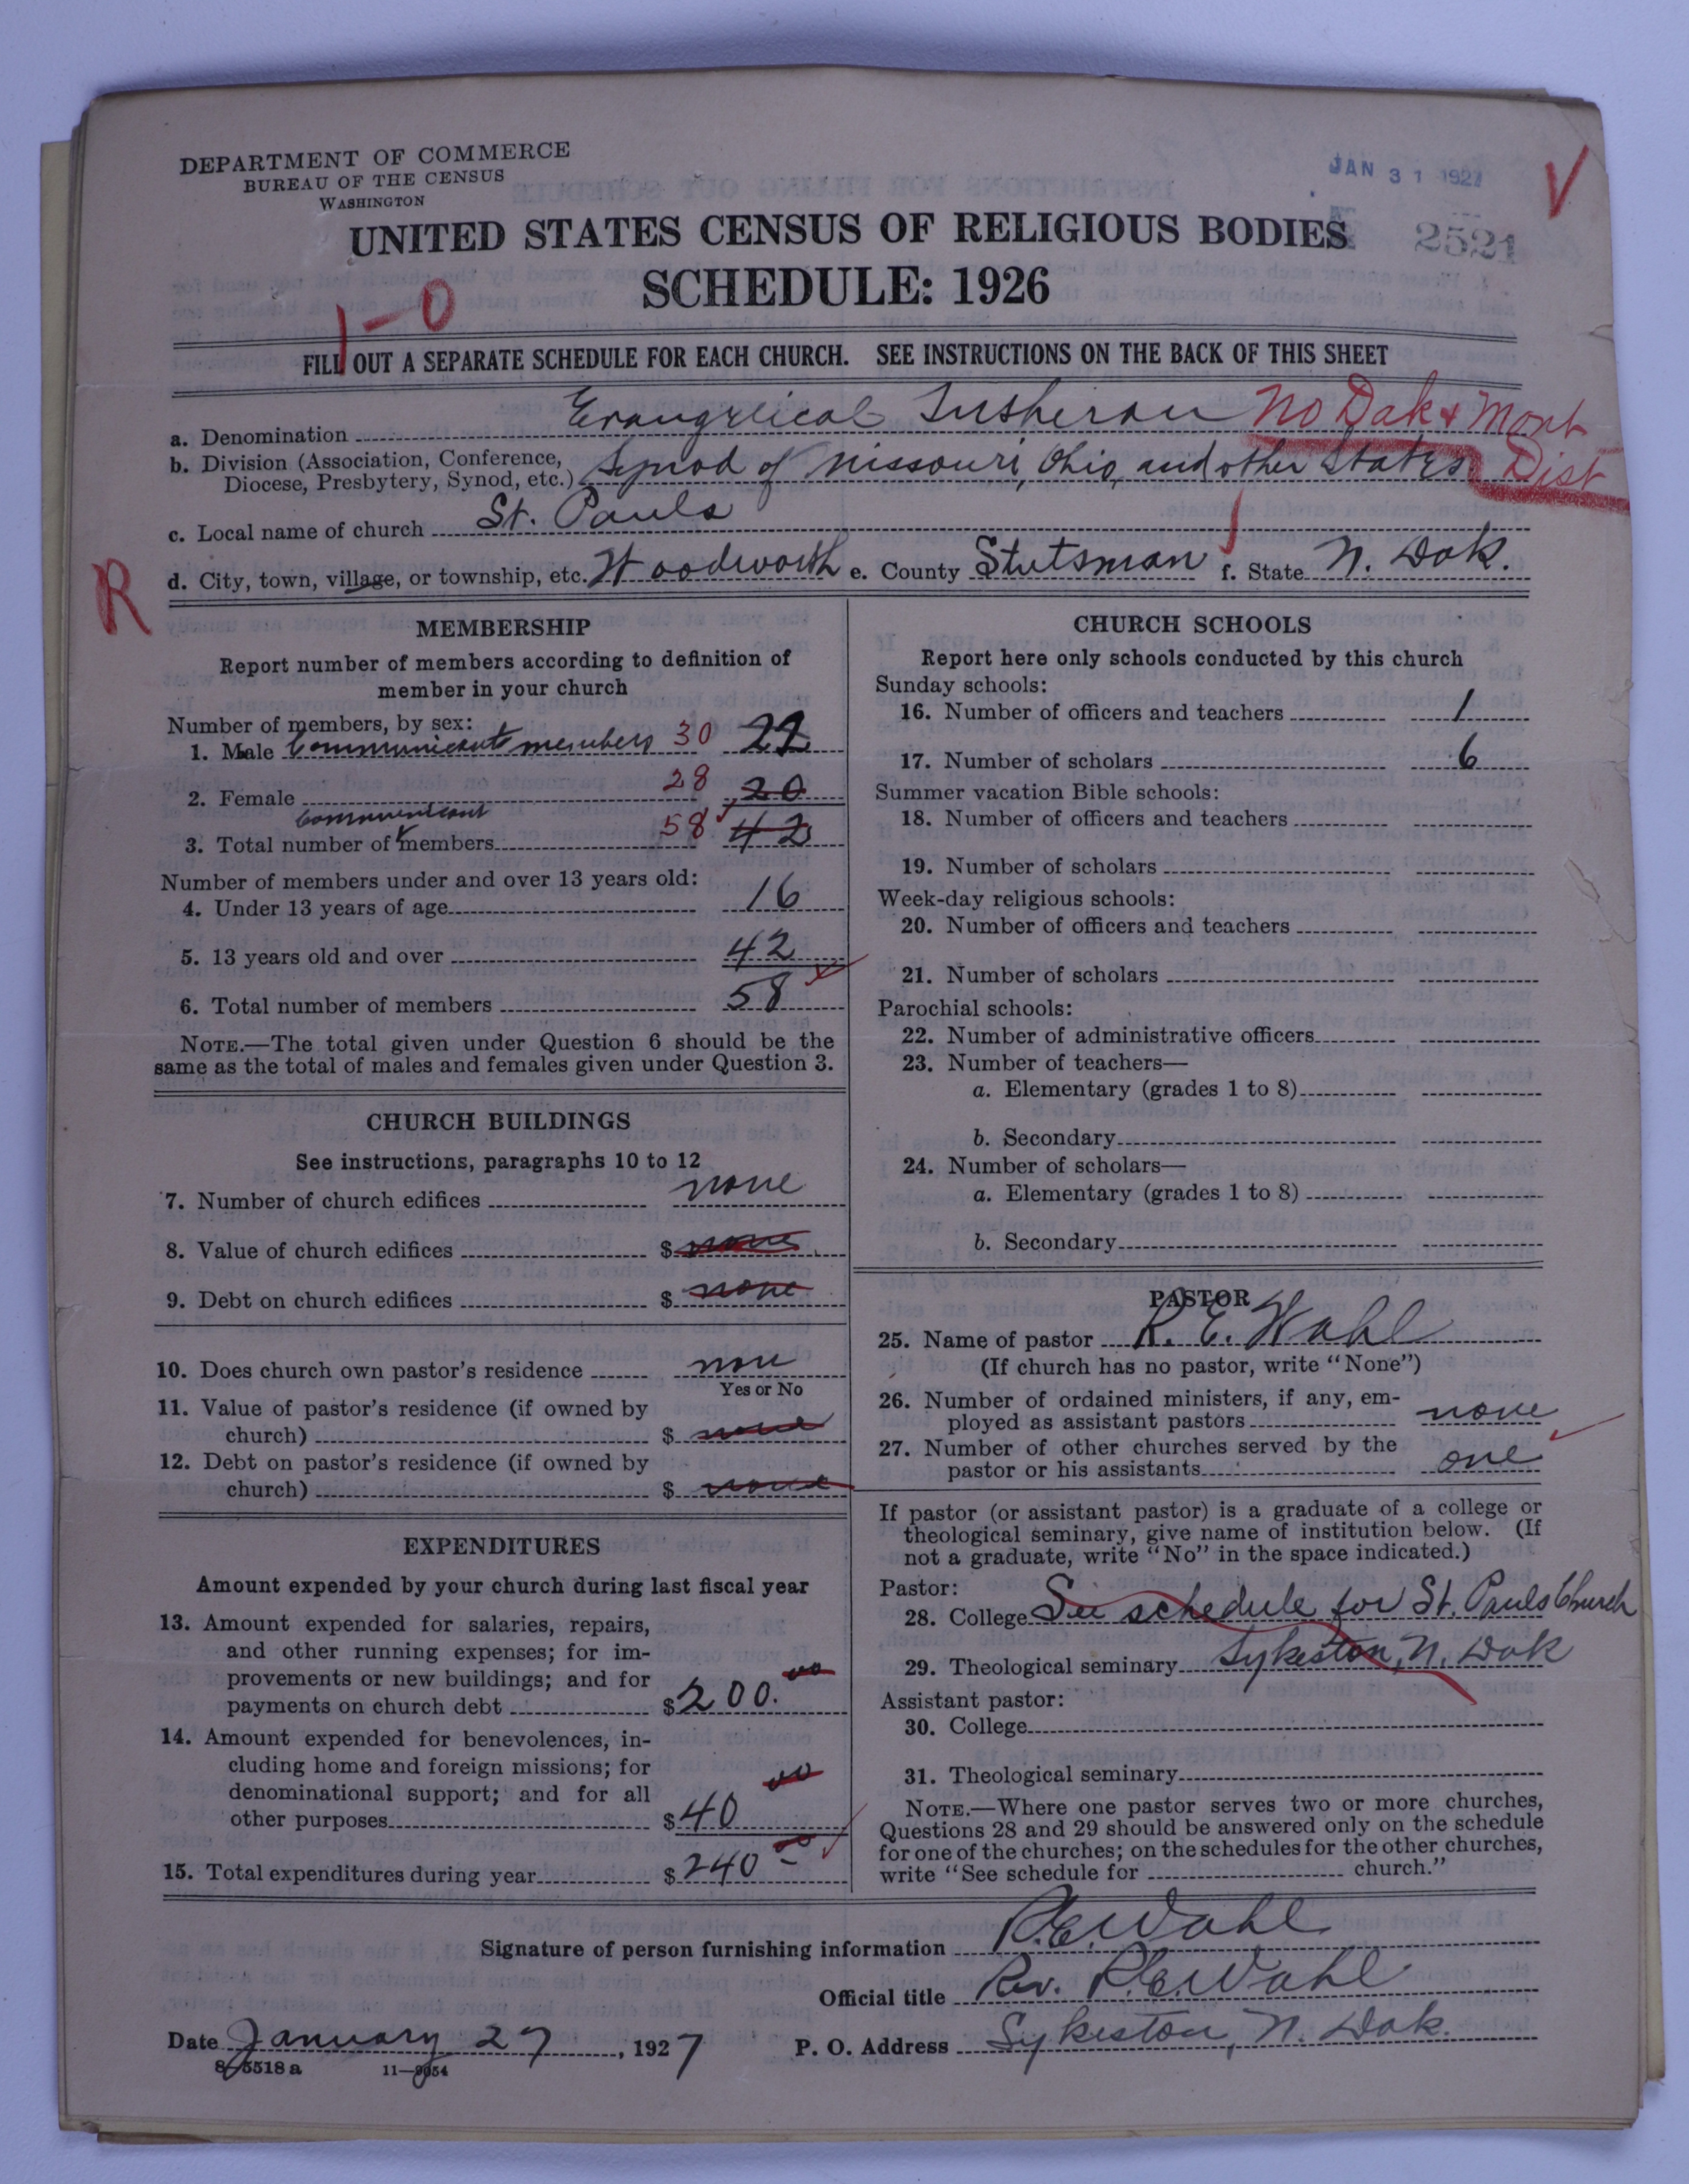 DEPARTMENT OF COMMERCE
BUREAU OF THE CENSUS
WASHINGTON
JAN 31 1927
V
2521
UNITED STATES CENSUS OF RELIGIOUS BODIES
SCHEDULE: 1926
1-0
FILL OUT A SEPARATE SCHEDULE FOR EACH CHURCH. SEE INSTRUCTIONS ON THE BACK OF THIS SHEET
a. Denomination Evangelical Lutheran No Dak & Mont
b. Division (Association, Conference, Diocese, Presbytery, Synod, etc.) Synod of Missouri, Ohio, and other States Dist
c. Local name of church St. Pauls
R
d. City, town, village, or township, etc. Woodworth e. County Stutsman f. State N. Dak.
MEMBERSHIP
Report number of members according to definition of
member in your church
Number of members, by sex:
1. Male Communicant members 30 22
2. Female 28 20
communicant
3. Total number of members 58 42
Number of members under and over 13 years old:
4. Under 13 years of age 16
5. 13 years old and over 42
6. Total number of members 58
NOTE.—The total given under Question 6 should be the
same as the total of males and females given under Question 3.
CHURCH BUILDINGS
See instructions, paragraphs 10 to 12
7. Number of church edifices none
8. Value of church edifices $ none
9. Debt on church edifices $ none
10. Does church own pastor's residence non
Yes or No
11. Value of pastor's residence (if owned by
church) $ none
12. Debt on pastor's residence (if owned by
church) $ none
EXPENDITURES
Amount expended by your church during last fiscal year
13. Amount expended for salaries, repairs,
and other running expenses; for im-
provements or new buildings; and for
payments on church debt $ 200.00
14. Amount expended for benevolences, in-
cluding home and foreign missions; for
denominational support; and for all
other purposes $ 40 00
15. Total expenditures during year $ 240 00
CHURCH SCHOOLS
Report here only schools conducted by this church
Sunday schools:
16. Number of officers and teachers 1
17. Number of scholars 6
Summer vacation Bible schools:
18. Number of officers and teachers
19. Number of scholars
Week-day religious schools:
20. Number of officers and teachers
21. Number of scholars
Parochial schools:
22. Number of administrative officers
23. Number of teachers—
a. Elementary (grades 1 to 8)
b. Secondary
24. Number of scholars—
a. Elementary (grades 1 to 8)
b. Secondary
PASTOR
25. Name of pastor R. E. Wahl
(If church has no pastor, write "None")
26. Number of ordained ministers, if any, em-
ployed as assistant pastors none
27. Number of other churches served by the
pastor or his assistants one
If pastor (or assistant pastor) is a graduate of a college or
theological seminary, give name of institution below. (If
not a graduate, write "No" in the space indicated.)
Pastor:
28. College See schedule for St. Pauls Church
29. Theological seminary Sykeston, N. Dak
Assistant pastor:
30. College
31. Theological seminary
NOTE.—Where one pastor serves two or more churches,
Questions 28 and 29 should be answered only on the schedule
for one of the churches; on the schedules for the other churches,
write "See schedule for church."
Signature of person furnishing information R. E. Wahl
Official title Rev. R. E. Wahl
Date January 27, 1927 P. O. Address Sykeston, N. Dak.
8-5518 a 11-9054